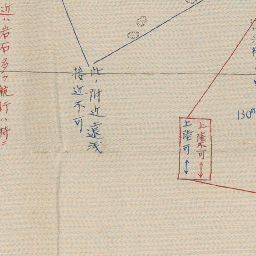 近ハ岩石多ク航行ハ特ニ
此ノ附近遠浅
接近不可
上陸不可
上陸可
130